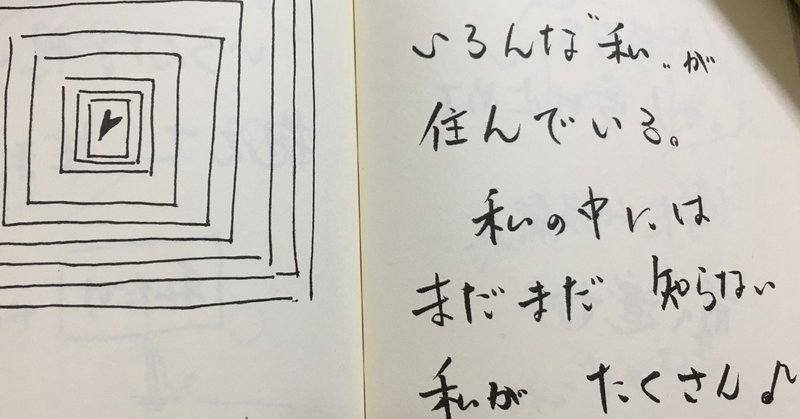 いろんな"私"が
住んでいる。
私の中には
まだまだ 知らない
私が たくさん♪